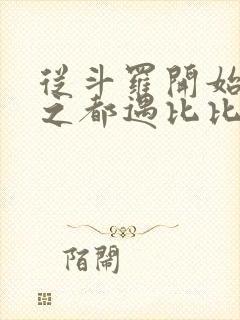 從斗羅開始
之都遇比比
陌鬧